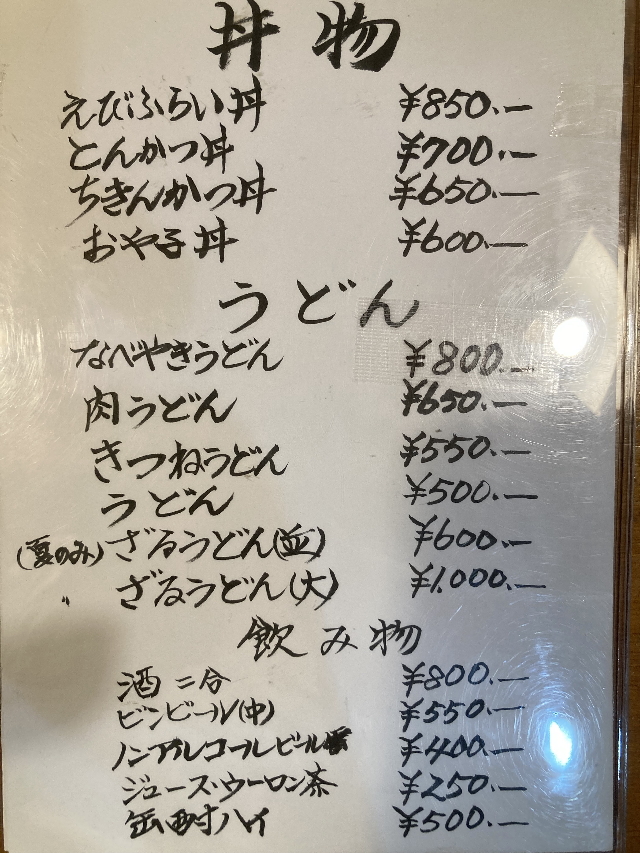 丼物
えびふらい丼 ¥850.—
とんかつ丼 ¥700.—
ちきんかつ丼 ¥650.—
おや子丼 ¥600.—
うどん
なべやきうどん ¥800.—
肉うどん ¥650.—
きつねうどん ¥550.—
うどん ¥500.—
(夏のみ)ざるうどん(並) ¥600.—
〃 ざるうどん(大) ¥1.000.—
飲み物
酒 二合 ¥800.—
ビンビール(中) ¥550.—
ノンアルコールビール ¥400.—
ジュース・ウーロン茶 ¥250.—
缶酎ハイ ¥500.—